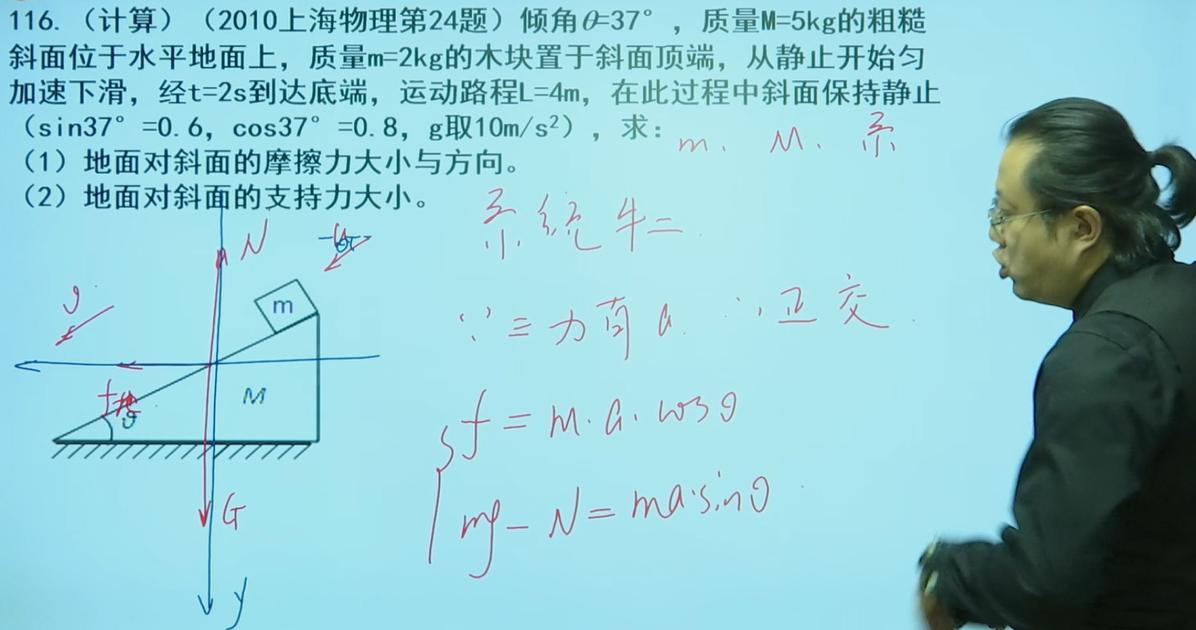 116.（计算）（2010上海物理第24题）倾角θ=37°，质量M=5kg的粗糙
斜面位于水平地面上，质量m=2kg的木块置于斜面顶端，从静止开始匀
加速下滑，经t=2s到达底端，运动路程L=4m，在此过程中斜面保持静止
（sin37°=0.6，cos37°=0.8，g取10m/s²），求：
m. M. 系
（1）地面对斜面的摩擦力大小与方向。
（2）地面对斜面的支持力大小。
系统牛二
N
m
∵三力有a ∴正交
M
f
θ
f=m.a.cosθ
G
mg-N=ma.sinθ
y